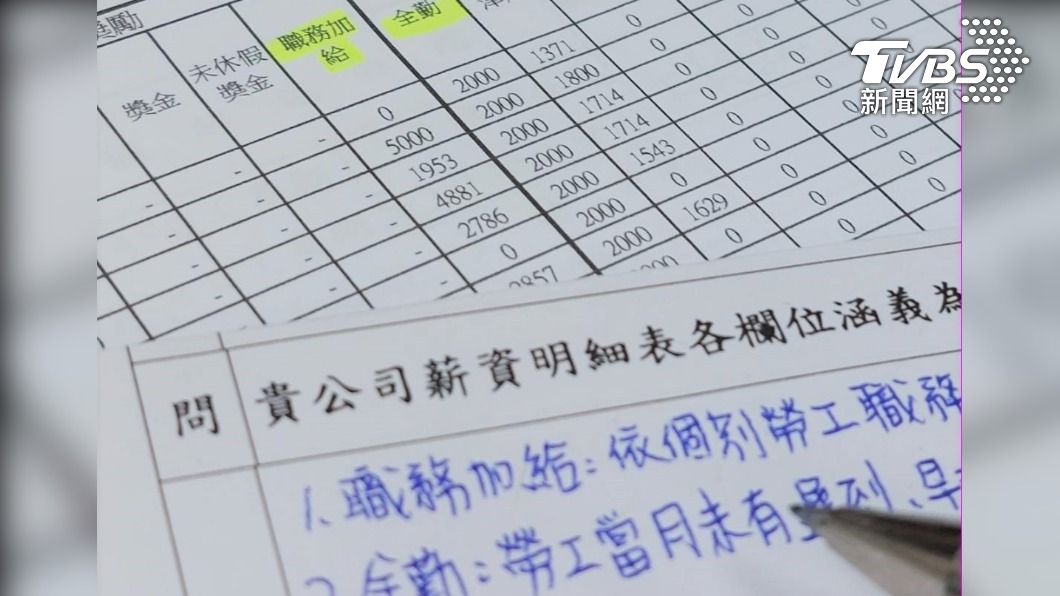 TVBS
新聞網
獎金
未休假
獎金
職務加
給
全勤
0 2000 1371 0 0
5000 2000 1800 0 0
1953 2000 1714 0 0
4881 2000 1714 0 0
2786 2000 1543 0 0
0 2000 0 0 0
2000 1629 0 0
問 貴公司薪資明細表各欄位涵義為
1. 職務加給：依個別勞工職務
全勤：勞工當月未有遲到、早